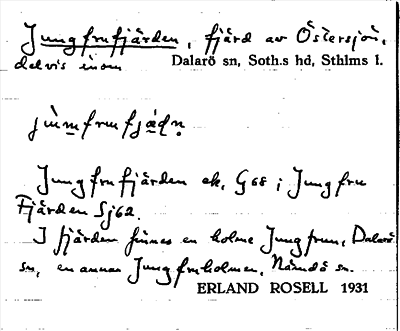 Jungfrufjärden, fjärd av Östersjön,
delvis inom Dalarö sn, Soth.s hd, Sthlms l.
jùmfrufjäḍṇ
Jungfrufjärden ek. G68 i Jungfru
Fjärden Sj62.
I fjärden finnes en holme Jungfrun, Dalarö
sn, en annan Jungfruholmen, Nämdö sn.
ERLAND ROSELL 1931